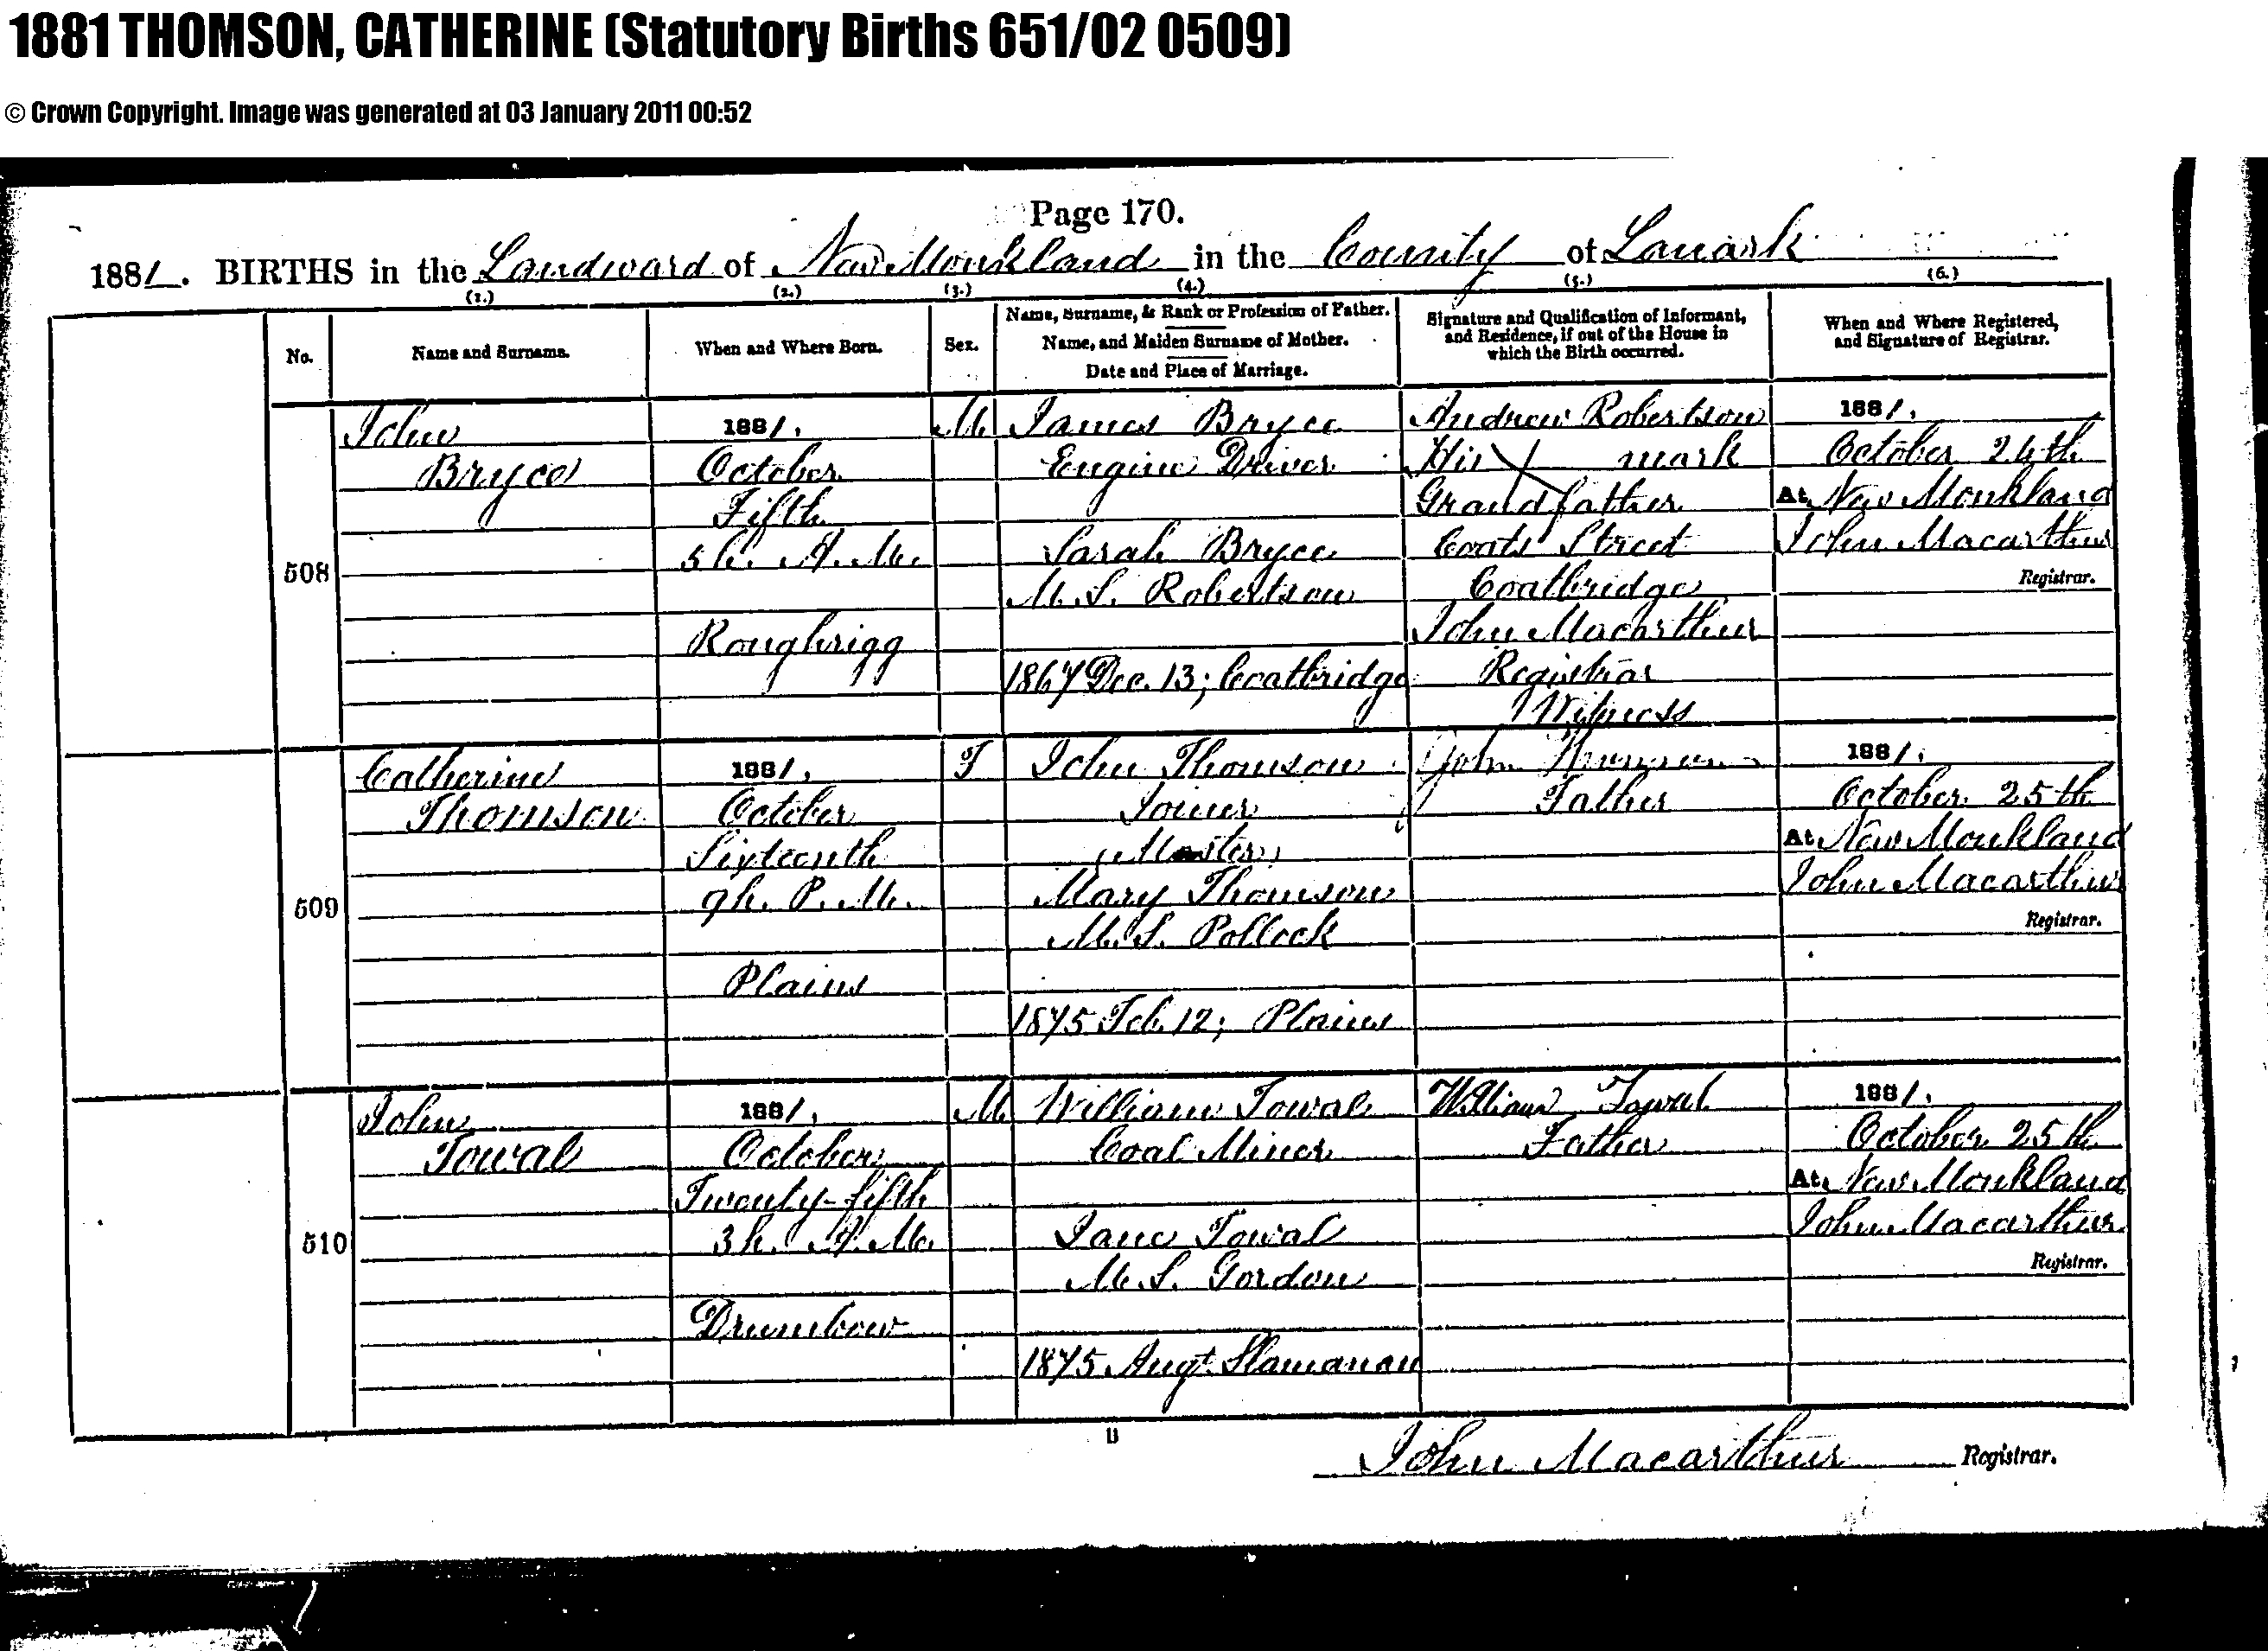 1881 THOMSON, CATHERINE (Statutory Births 651/02 0509)
© Crown Copyright. Image was generated at 03 January 2011 00:52
Page 170.
1881. BIRTHS in the Landward of New Monkland in the County of Lanark
(1.) (2.) (3.) (4.) (5.) (6.)
No.
Name and Surname.
When and Where Born.
Sex.
Name, Surname, & Rank or Profession of Father.
Name, and Maiden Surname of Mother.
Date and Place of Marriage.
Signature and Qualification of Informant,
and Residence, if out of the House in
which the Birth occurred.
When and Where Registered,
and Signature of Registrar.
508
John
Bryce
1881.
October
Fifth
5h. A.M.
Roughrigg
M
James Bryce
Engine Driver
Sarah Bryce
M.S. Robertson
1867 Dec. 13; Coatbridge
Andrew Robertson
His X mark
Grandfather
Coats Street
Coatbridge
John Macarthur
Registrar
Witness
1881.
October 24th
At New Monkland
John Macarthur
Registrar.
509
Catherine
Thomson
1881.
October
Sixteenth
9h. P.M.
Plains
F
John Thomson
Joiner
(Master)
Mary Thomson
M.S. Pollock
1875 Feb. 12; Plains
John Thomson
Father
1881.
October 25th
At New Monkland
John Macarthur
Registrar.
510
John
Towal
1881.
October
Twenty-fifth
3h. A.M.
Drumbow
M
William Towal
Coal Miner
Jane Towal
M.S. Gordon
1875 Augt. Slamanan
William Towal
Father
1881.
October 25th
At New Monkland
John Macarthur
Registrar.
John Macarthur Registrar.